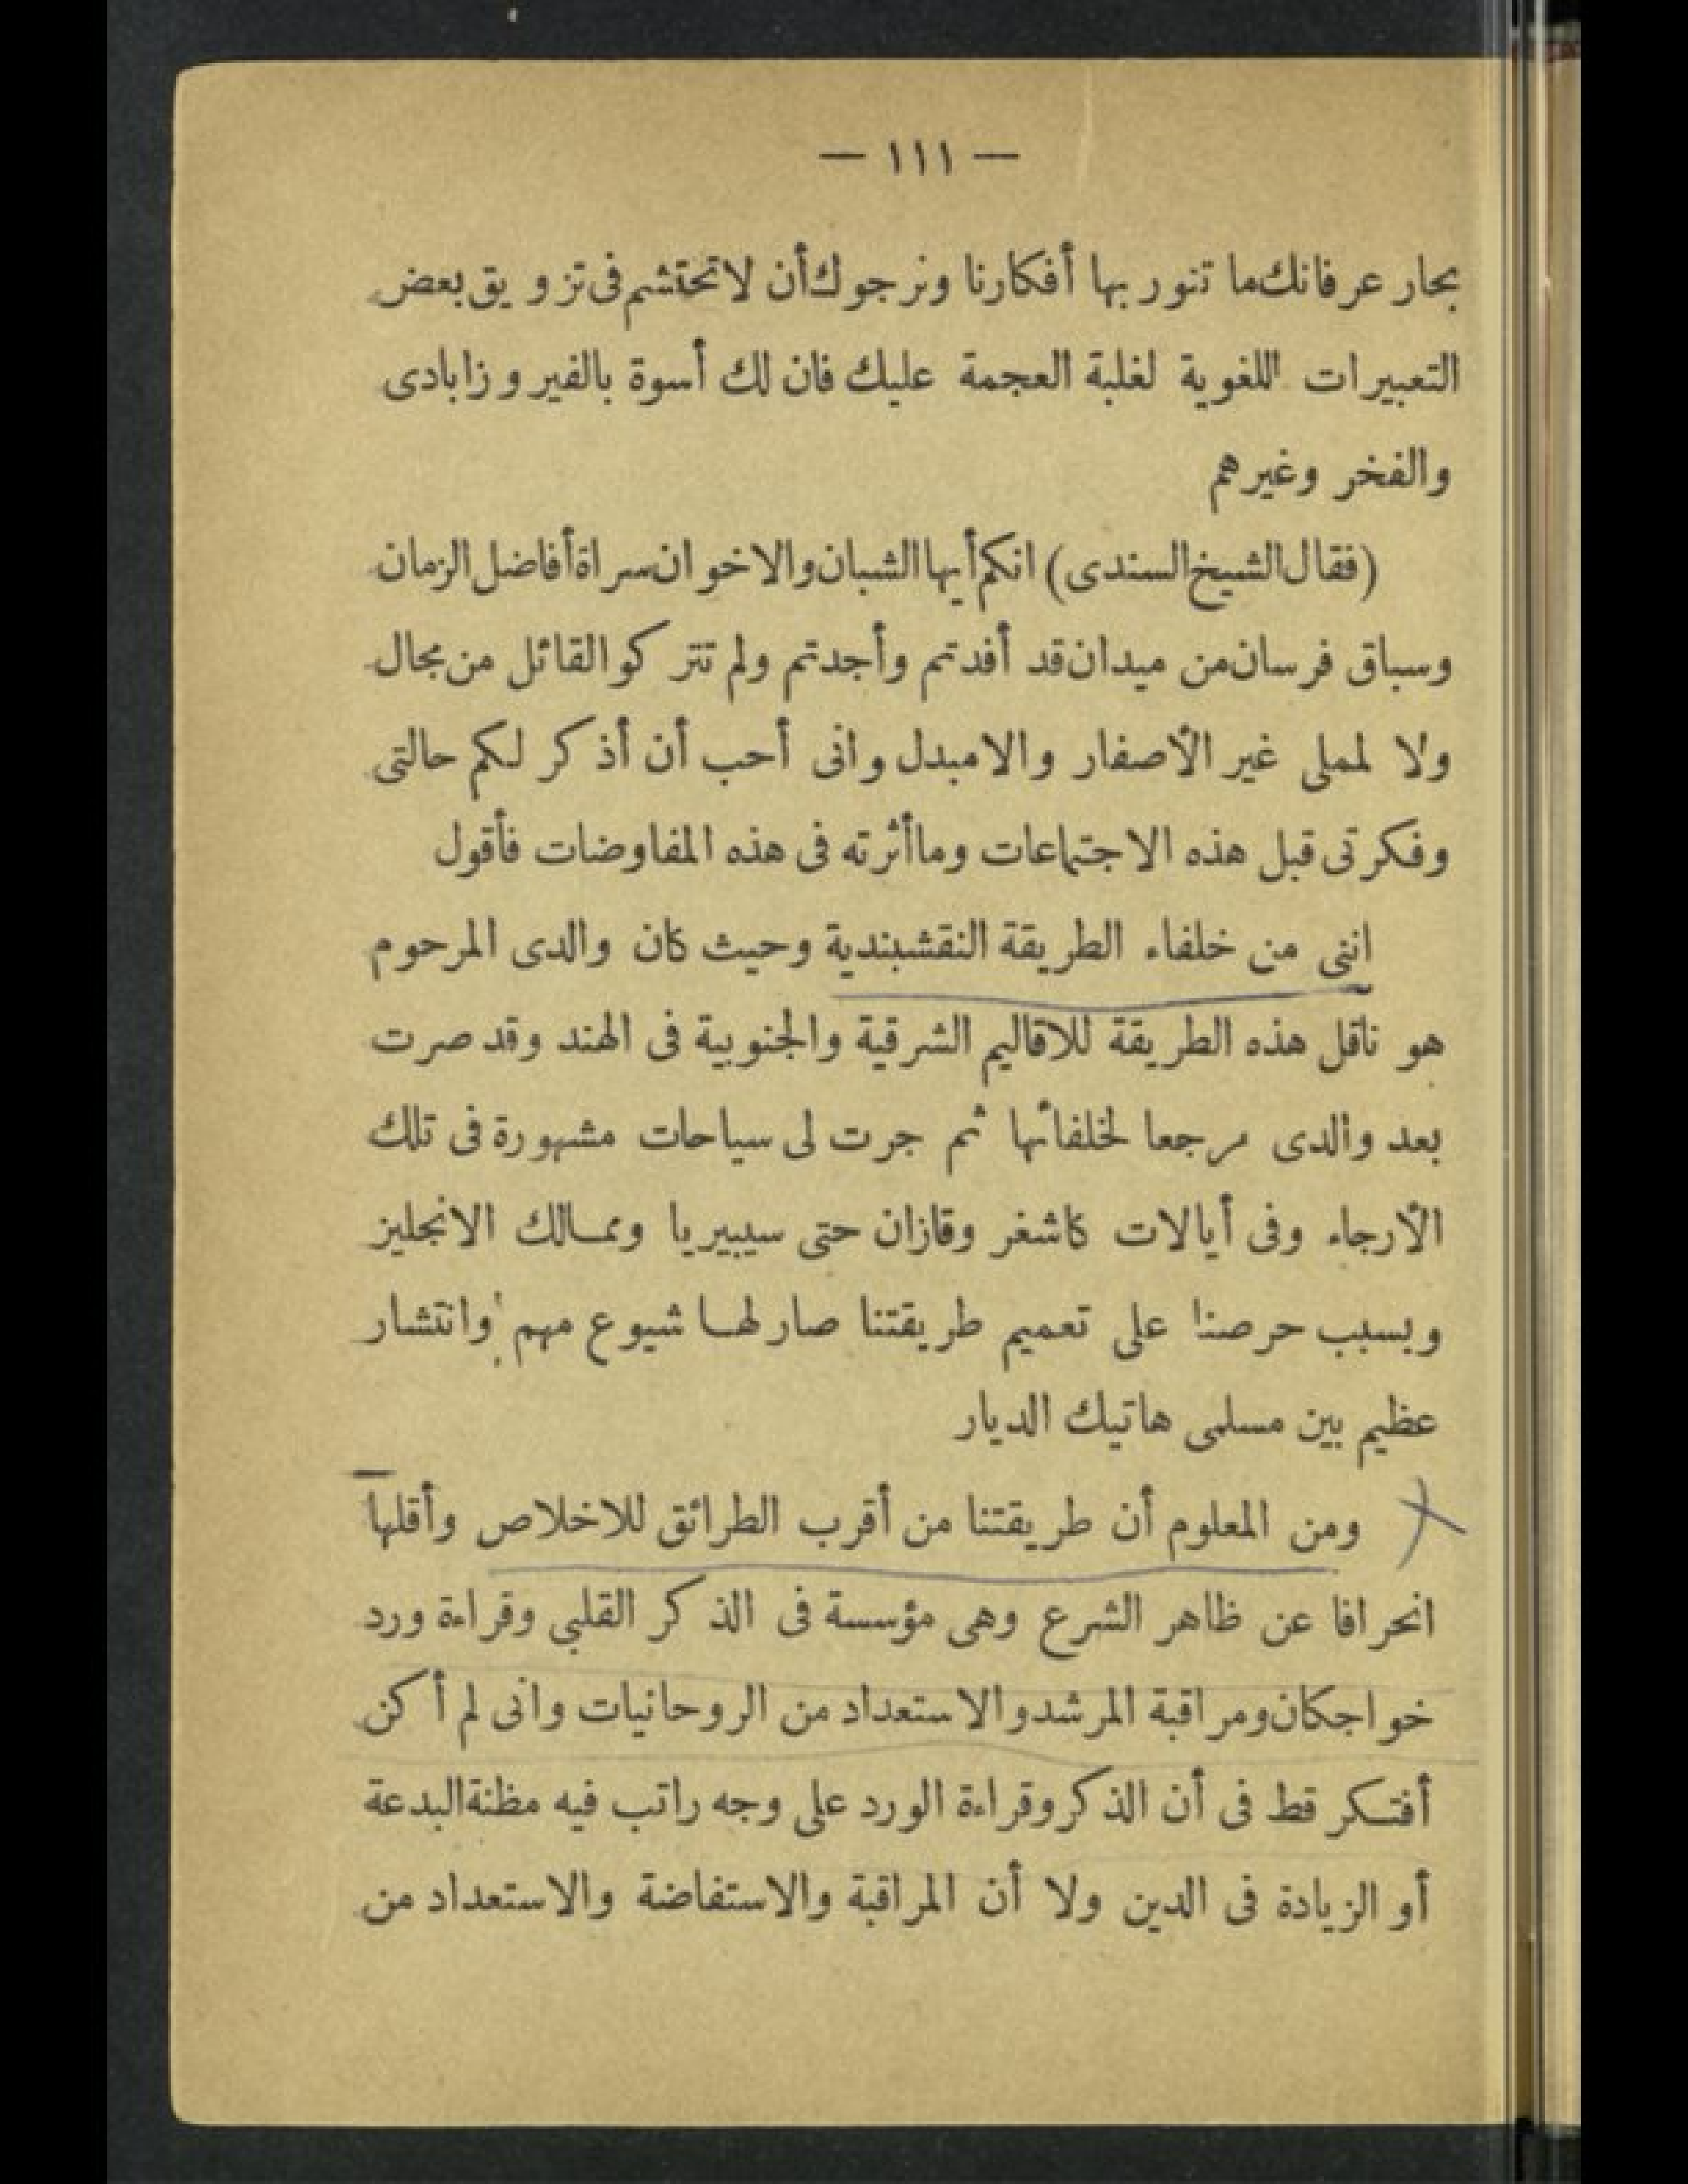 — ١١١ —
بحار عرفانك ما تنور بها أفكارنا ونرجوك أن لا تحتشم فى تزويق بعض
التعبيرات اللغوية لغلبة العجمة عليك فان لك أسوة بالفيروزابادى
والفخر وغيرهم
(فقال الشيخ السندى) انكم أيها الشبان والاخوان سراة أفاضل الزمان
وسباق فرسان من ميدان قد أفدتم وأجدتم ولم تتركوا لقائل من مجال
ولا لمملى غير الأصفار والامبدل وانى أحب أن أذكر لكم حالتى
وفكرتى قبل هذه الاجتماعات وما أثرته فى هذه المفاوضات فأقول
اننى من خلفاء الطريقة النقشبندية وحيث كان والدى المرحوم
هو ناقل هذه الطريقة للاقاليم الشرقية والجنوبية فى الهند وقد صرت
بعد والدى مرجعا لخلفائها ثم جرت لى سياحات مشهورة فى تلك
الأرجاء وفى أيالات كاشغر وقازان حتى سيبيريا وممالك الانجليز
وبسبب حرصنا على تعميم طريقتنا صار لها شيوع مهم وانتشار
عظيم بين مسلمى هاتيك الديار
ومن المعلوم أن طريقتنا من أقرب الطرائق للاخلاص وأقلها
انحرافا عن ظاهر الشرع وهى مؤسسة فى الذكر القلبي وقراءة ورد
خواجكان ومراقبة المرشد والاستعداد من الروحانيات وانى لم أكن
أفتكر قط فى أن الذكر وقراءة الورد على وجه راتب فيه مظنة البدعة
أو الزيادة فى الدين ولا أن المراقبة والاستفاضة والاستعداد من